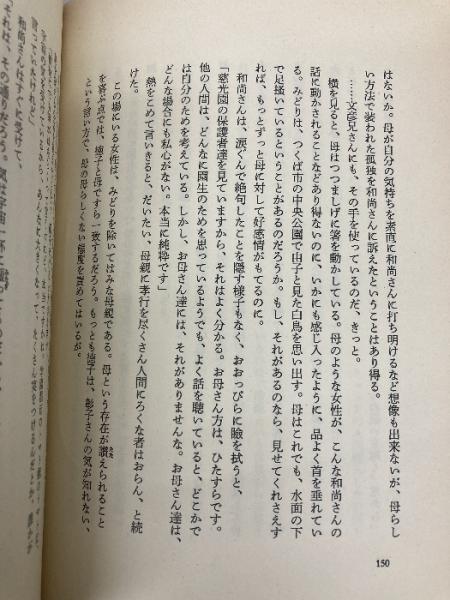 はないか。母が自分の気持ちを素直に和尚さんに打ち明けるなど想像も出来ないが、母らし
い方法で装われた孤独を和尚さんに訴えたということはあり得る。
……文彦兄さんにも、その手を使っているのだ、きっと。
横を見ると、母はつつましげに箸を動かしている。母のような女性が、こんな和尚さんの
話に動かされることなどあり得ないのに、いかにも感じ入ったように、品よく首を垂れてい
る。みどりは、つくば市の中央公園で由子と見た白鳥を思い出す。母はこれでも、水面の下
で足掻いているということがあるのだろうか。もし、それがあるのなら、見せてくれさえす
れば、もっとずっと母に対して好感情がもてるのに。
和尚さんは、涙ぐんで絶句したことを隠す様子もなく、おおっぴらに瞼を拭うと、
「慈光園の保護者達を見ていますから、それはよく分かる。お母さん方は、ひたすらです。
他の人間は、どんなに園生のためを思っているようでも、よく話を聴いていると、どこかで
は自分のためを考えている。しかし、お母さん達には、それがありませんな。お母さん達は、
どんな場合にも私心がない。本当に純粋です」
熱をこめて言いきると、だいたい、母親に孝行を尽くさん人間にろくな者はおらん、と続
けた。
この場にいる女性は、みどりを除いてはみな母親である。母という存在が讃えられること
を喜ぶ点では、
と母ですら一致するだろう。もっとも
子は、彰子さんの気が知れない、
という言い方で、母の母らしくない態度を責めてはいるが。
和尚さんはすぐに受けて、
「それは、その通りだろう。
150